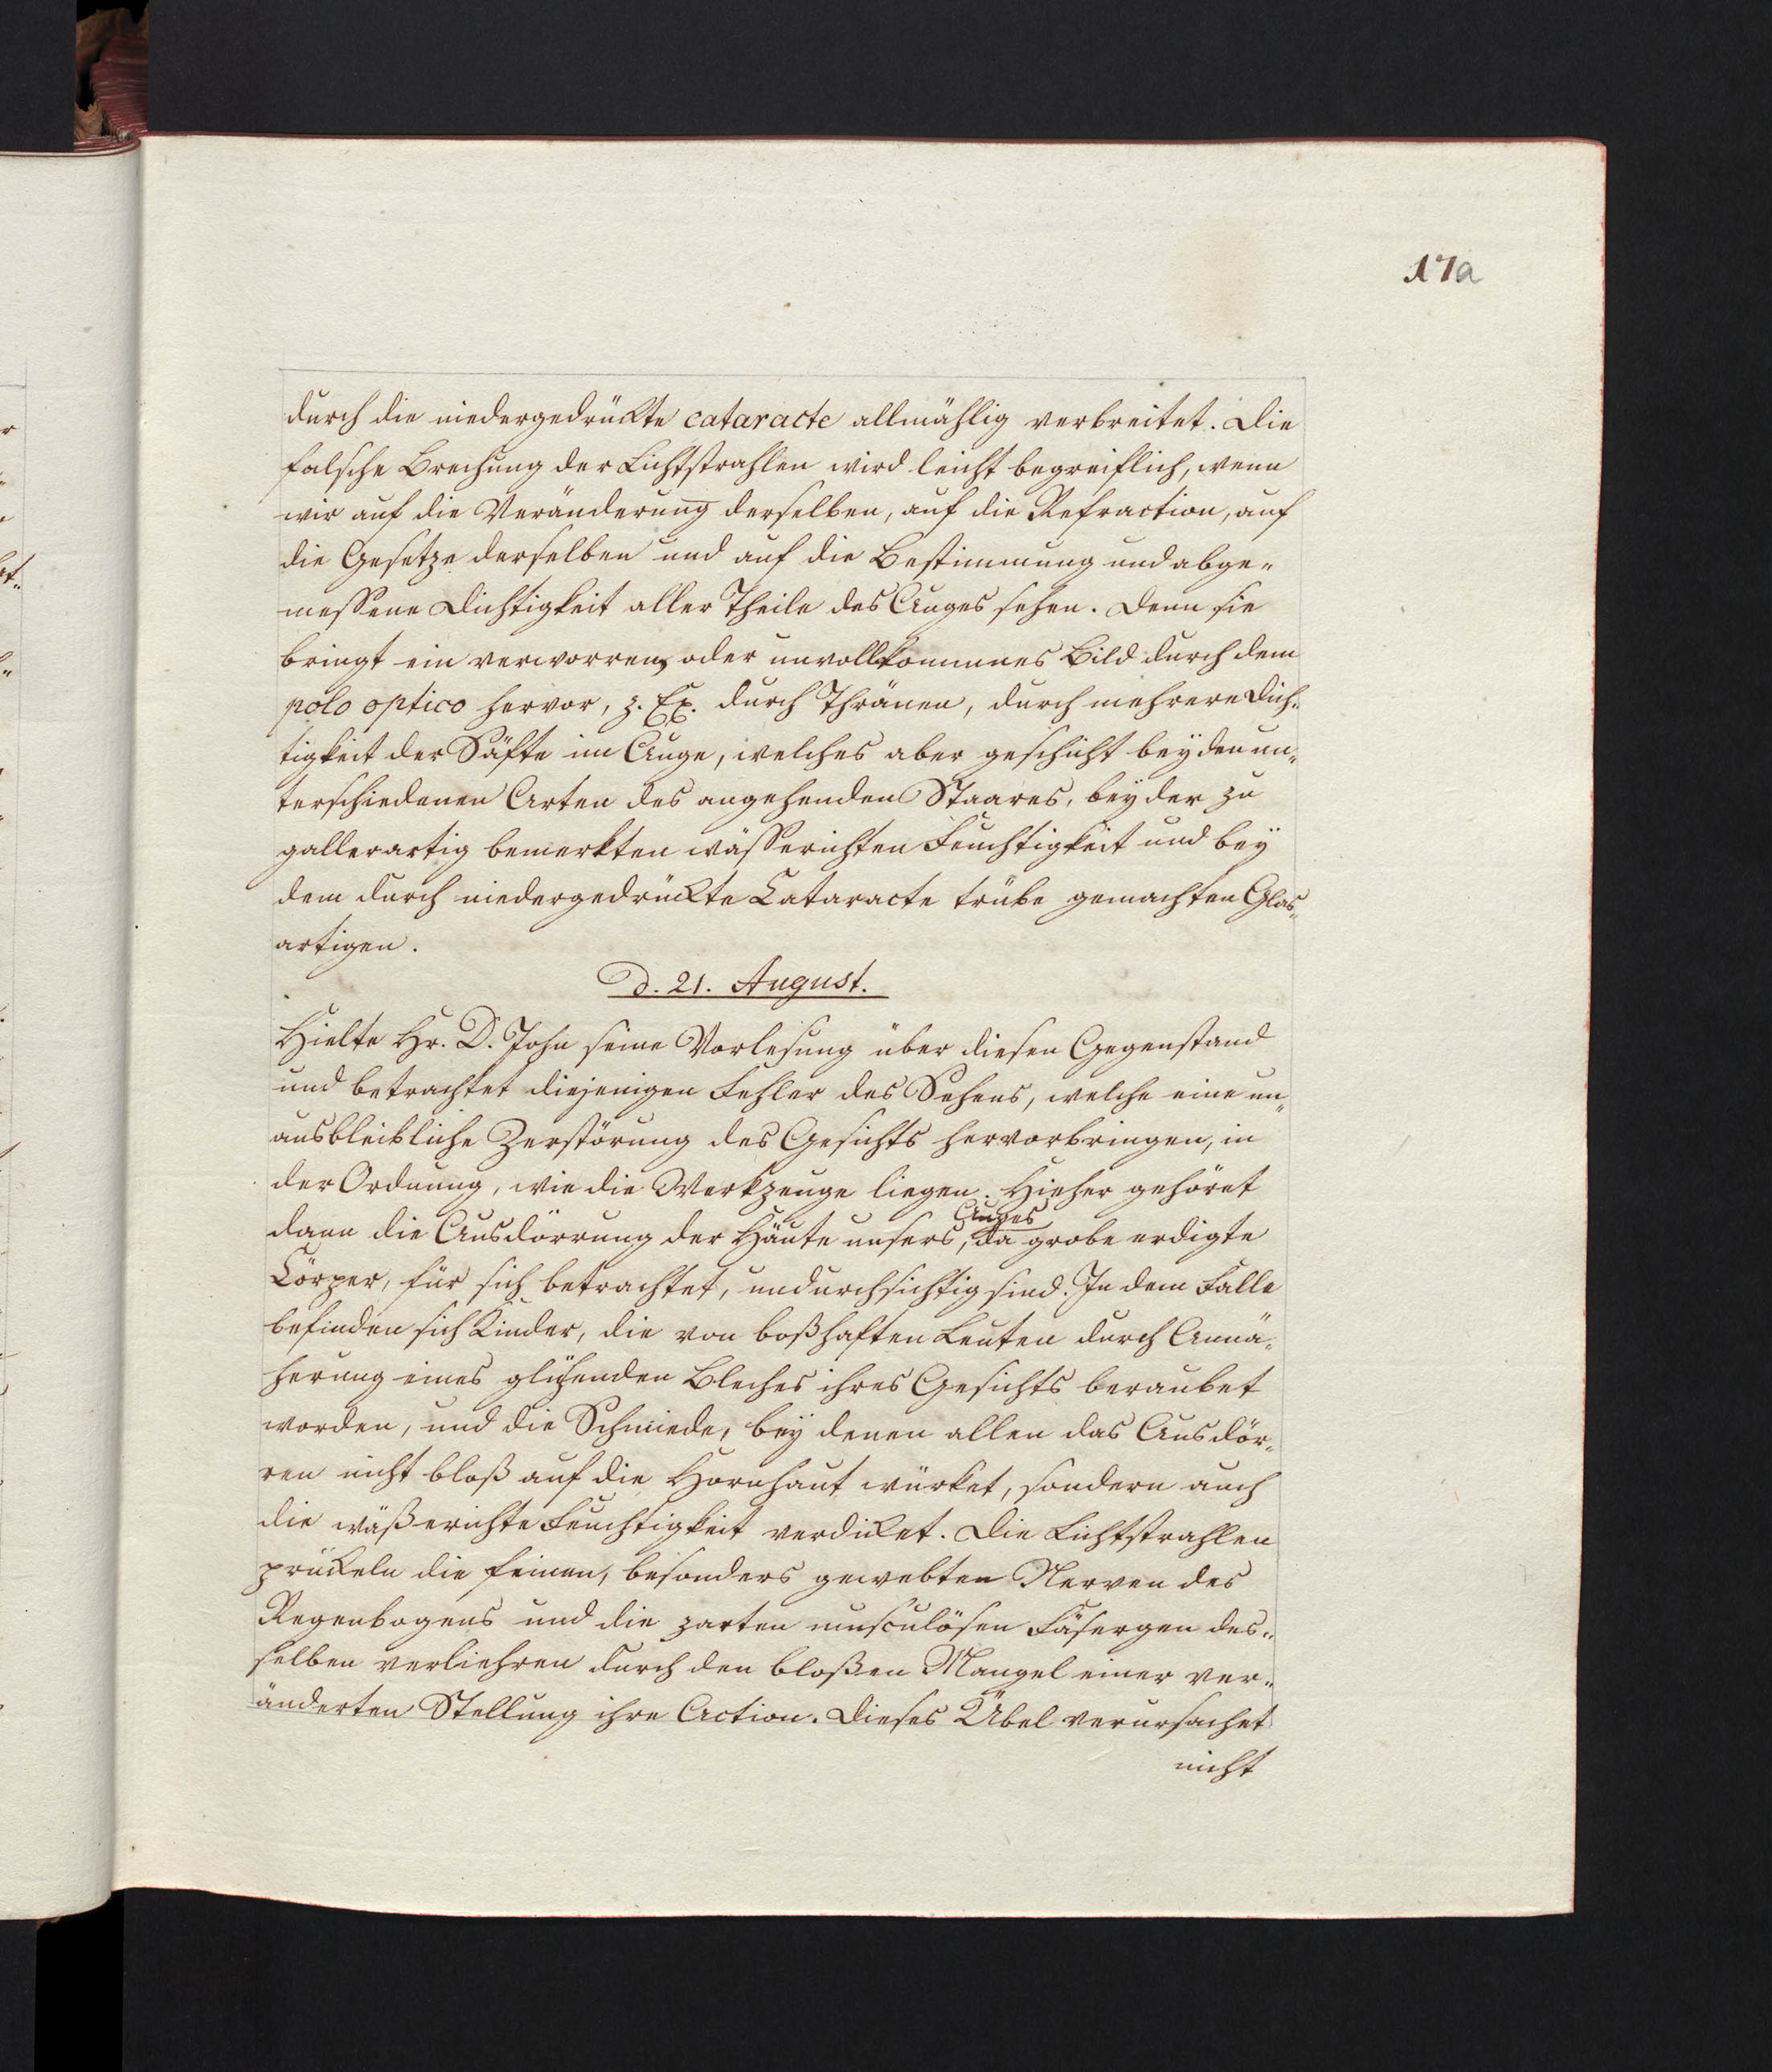 17a
durch die niedergedrükte cataracte allmählig verbreitet. Die
falsche Brechung der Lichtstrahlen wird leicht begreiflich, wenn
wir auf die Veränderung derselben, auf die Refraction, auf
die Gesetze derselben und auf die Bestimmung und abge„
messene Dichtigkeit aller Theile des Auges sehen. Denn sie
bringt ein verworrens oder unvollkommnes Bild durch dem
polo optico hervor, z. Ex. durch Thränen, durch mehrere Dich„
tigkeit der Säfte im Auge, welches aber geschieht bey den un„
terschiedenen Arten des angehenden Staares, bey der zu
gallerartig bemerkten wässerichten Feuchtigkeit und bey
dem durch niedergedrückte Cataracte trübe gemachten Glas„
artigen.
d. 21. August.
Hielte Hr. D. John seine Vorlesung über diesen Gegenstand
und betrachtet diejenigen Fehler des Sehens, welche eine un„
ausbleibliche Zerstörung des Gesichts hervorbringen, in
der Ordnung, wie die Werkzeuge liegen. Hieher gehöret
Auges
dann die Ausdörrung der Häute unsers, da grobe erdigte
Cörper, für sich betrachtet, undurchsichtig sind. In dem Falle
befinden sich Kinder, die von boßhaften Leuten durch Annä„
herung eines glühenden Bleches ihres Gesichts beraubet
worden, und die Schmiede, bey denen allen das Ausdör„
ren nicht bloß auf die Hornhaut würket, sondern auch
die wäßerichte Feuchtigkeit verdicket. Die Lichtstrahlen
prückeln die feinen, besonders gewebten Nerven des
Regenbogens und die zarten musculösen Fäsergen des„
selben verliehren durch den bloßen Mangel einer ver„
änderten Stellung ihre Action. Dieses Übel verursachet
nicht